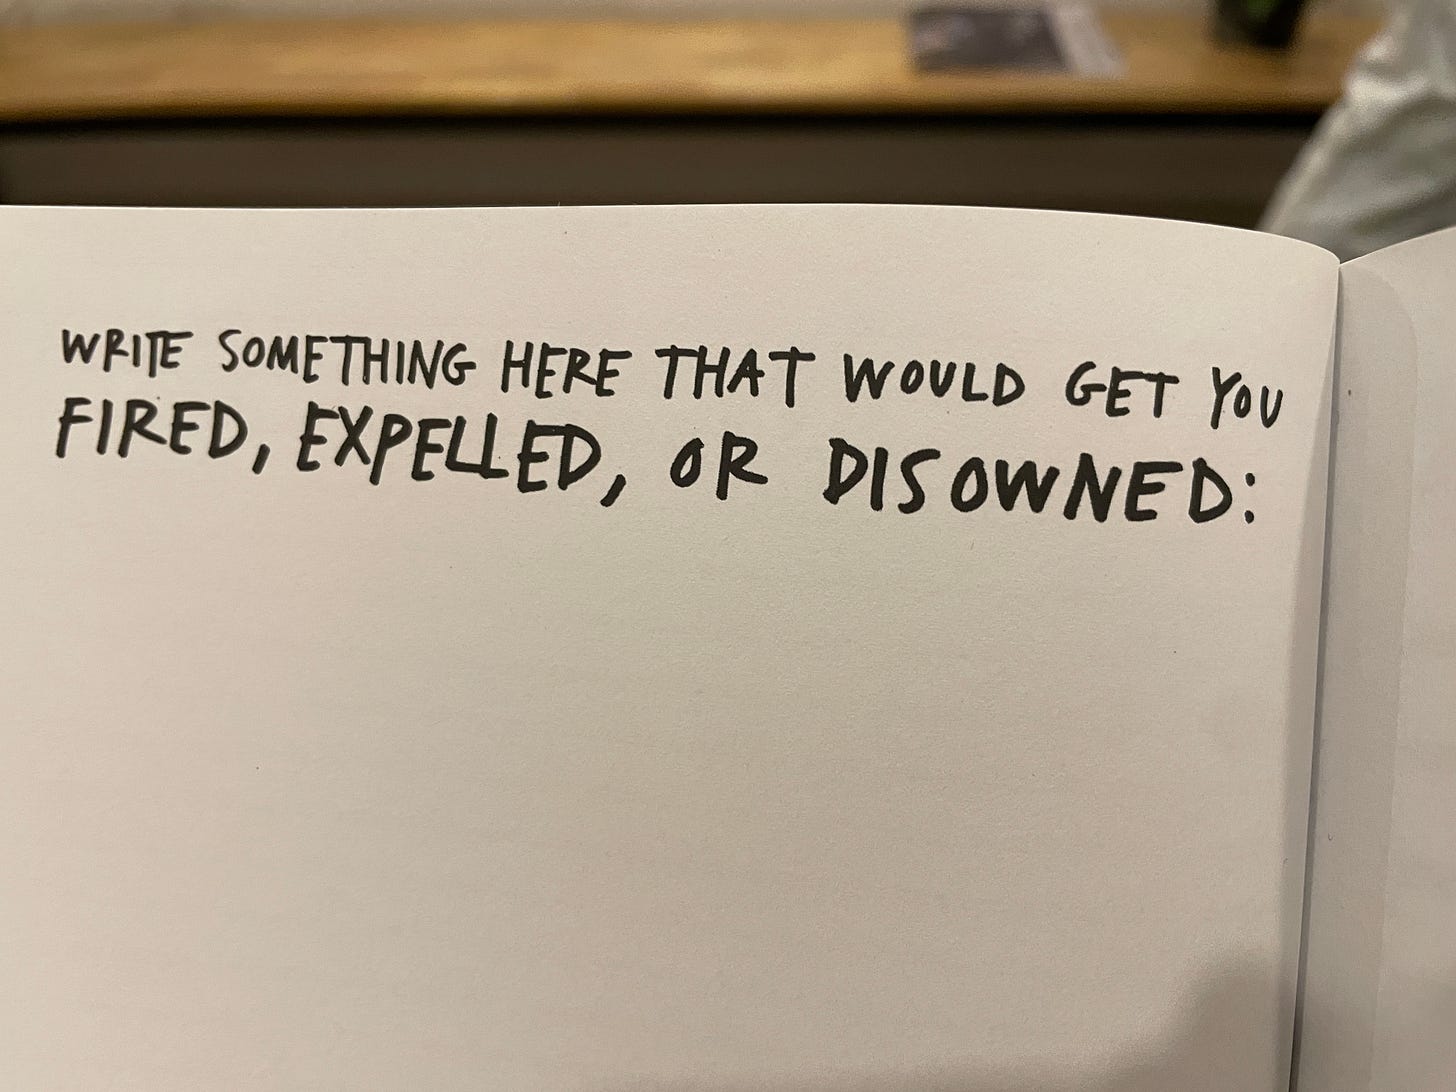 WRITE SOMETHING HERE THAT WOULD GET YOU
FIRED, EXPELLED, OR DISOWNED: